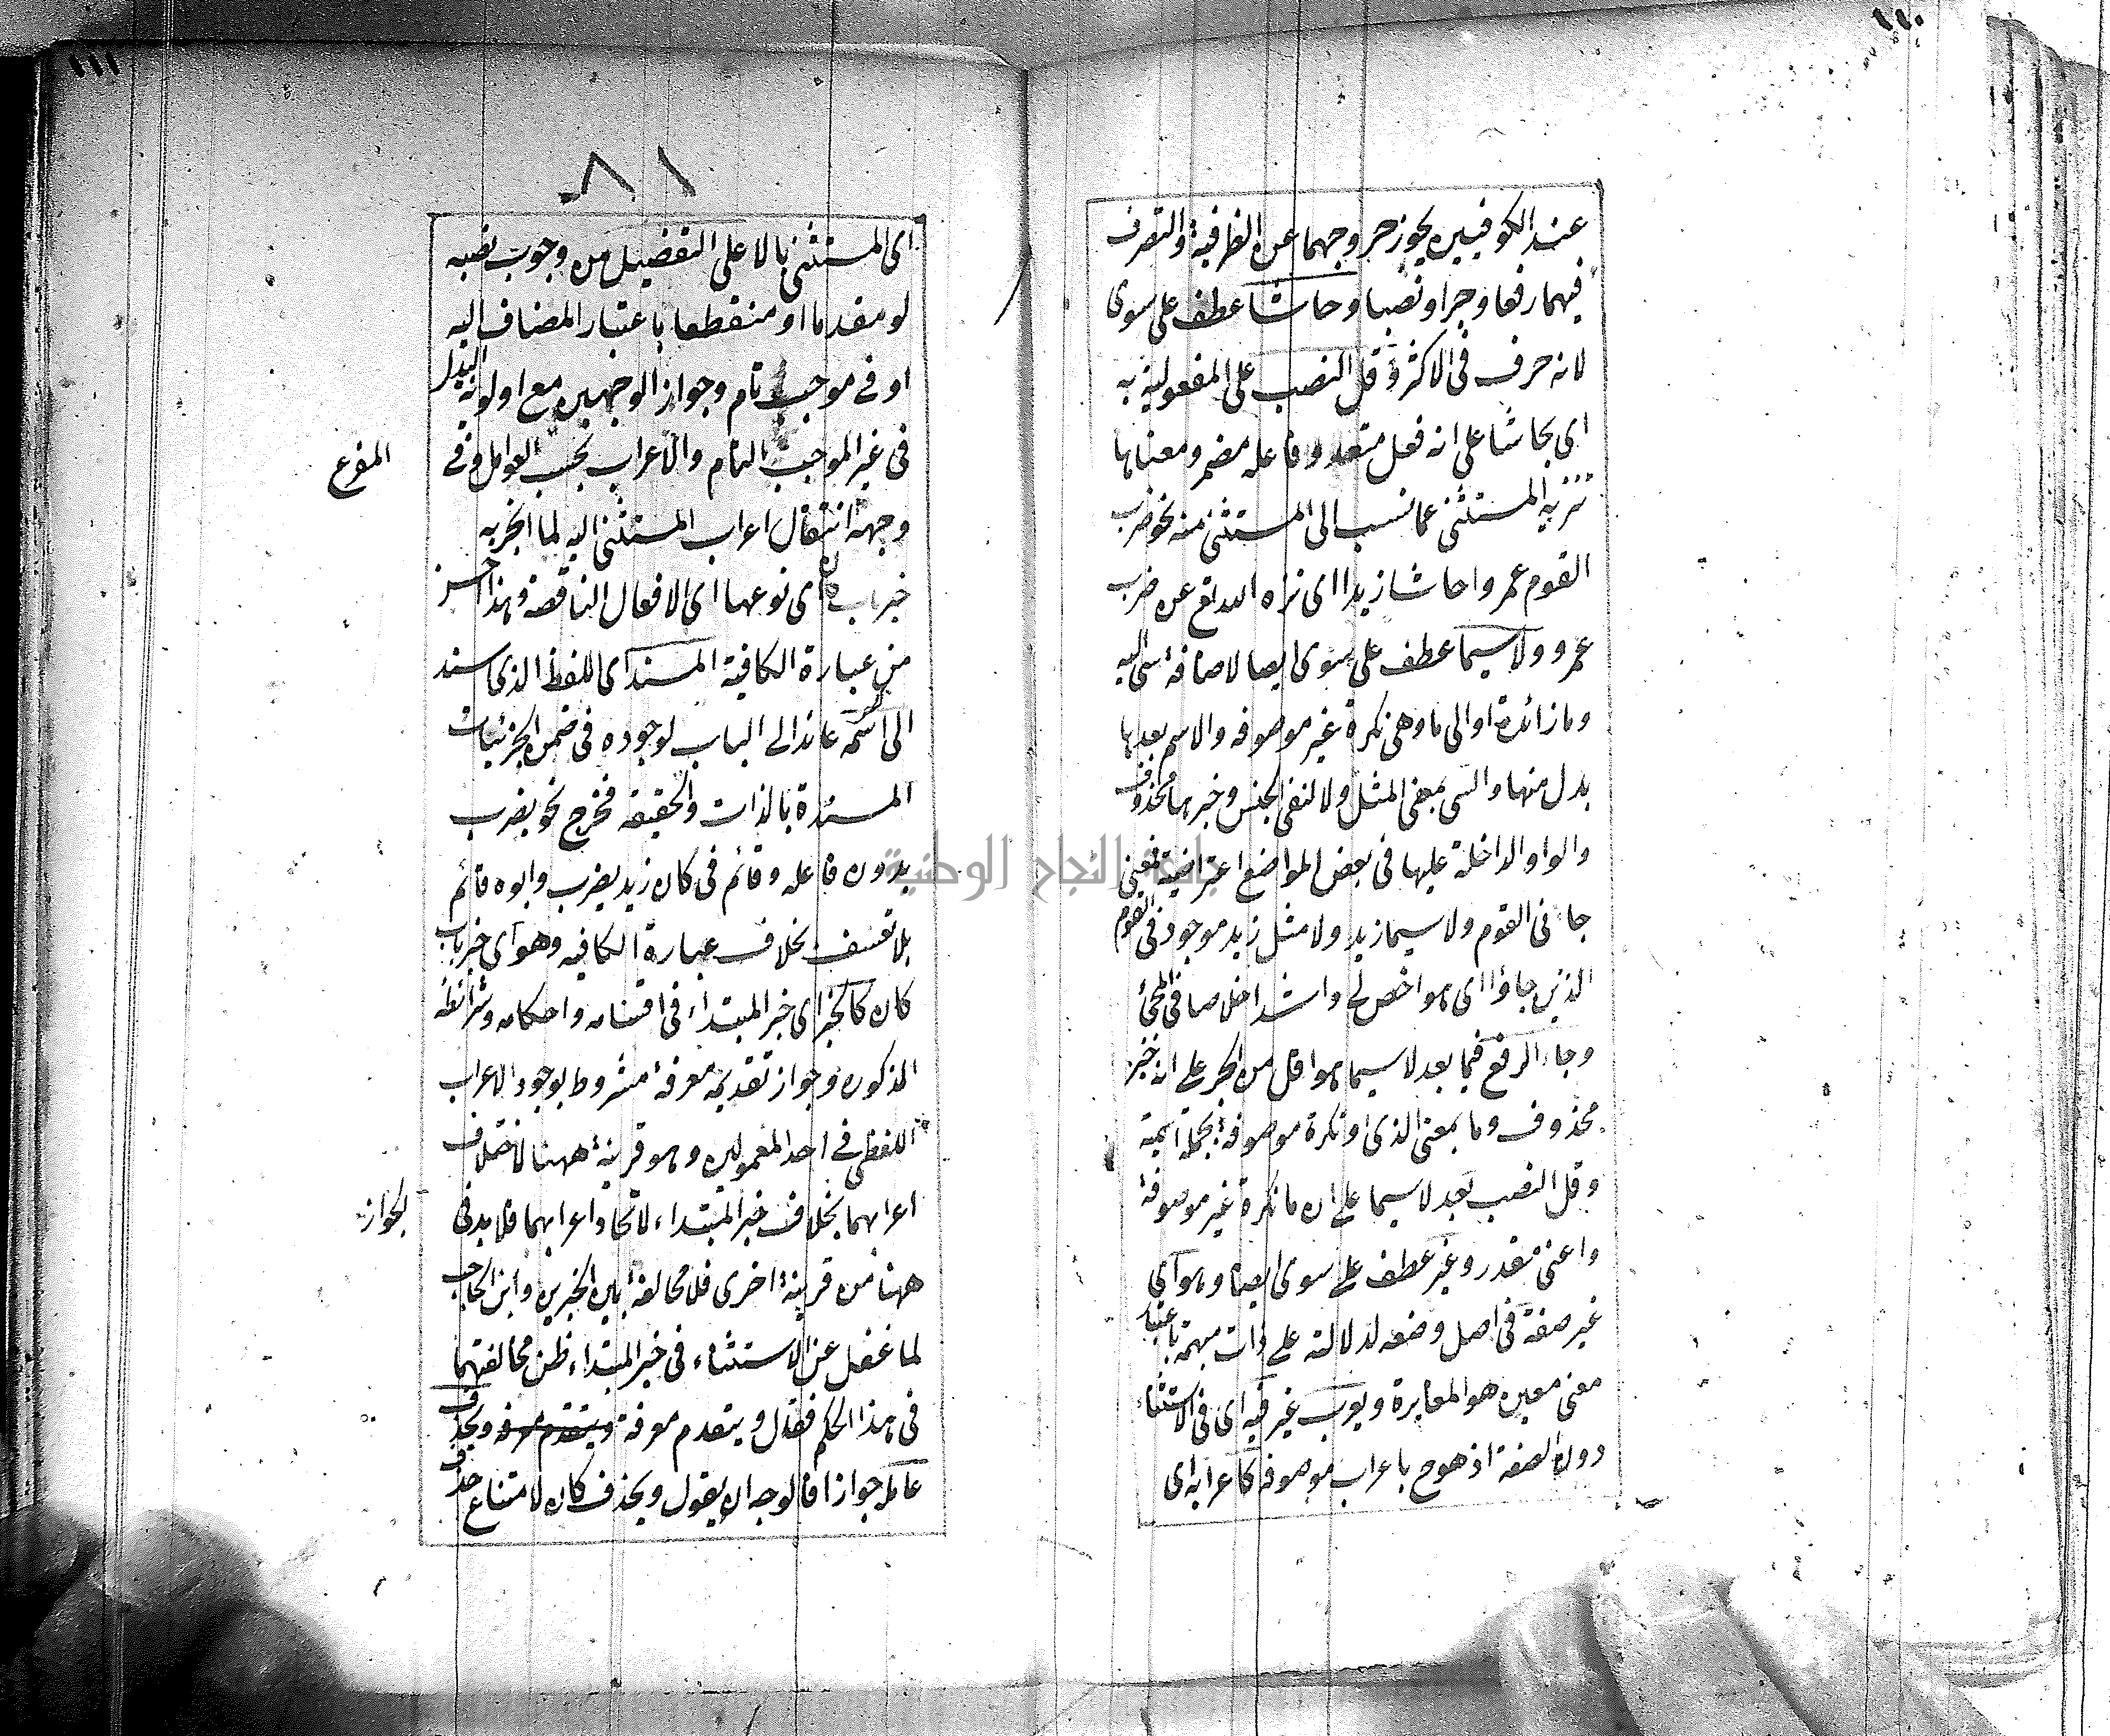 ١١٠
عند الكوفيين يجوز خروجهما عن الظرفية والتصرف
فيهما رفعا وجرا ونصبا وحاشا عطف على سوى
لانه حرف فى الاكثر وقل النصب على المفعولية به
اى بحاشا على انه فعل متعد وفاعله مضمر ومعناها
تنزيه المستثنى عما نسب الى المستثنى منه نحو ضرب
القوم عمروا حاشا زيدا اى نزه الله تع عن ضرب
عمرو ولاسيما عطف على سوى ايضا لاضافة سى اليه
وما زائدة او الى ما وهى نكرة غير موصوفه والاسم بعدها
بدل منها والسى بمعنى المثل ولا لنفى الجنس وخبرها محذوف
والواو الداخلة عليها فى بعض المواضع اعتراضية فمعنى
جاءنى القوم ولاسيما زيد ولا مثل زيد موجود فى القوم
الذين جاؤا اى هو اخص لى واشد اخلاصا فى المجئ
وجاء الرفع فيما بعد لاسيما هو اقل من الجر على انه خبر
محذوف وما بمعنى الذى او نكرة موصوفة بجملة اسمية
وقل النصب بعد لاسيما على ان ما نكرة غير موصوفة
واعنى مقدر وغير عطف على سوى ايضا وهو اى
غير صفة فى اصل وضعه لدلالته على ذات مبهمة باعتبار
معنى معين هو المغايرة ويعرب غير فيه اى فى الاستثناء
دون الصفة اذ هو ح باعراب موصوفه كاعرابه اى
١١١
٨١
اى المستثنى بالا على التفضيل من وجوب نصبه
لو مقدما او منقطعا باعتبار المضاف اليه
او فى موجب تام وجواز الوجهين مع اولوية البدل
فى غير الموجب التام والاعراب بحسب العوامل وفى
المفرع
وجهه انتقال اعراب المستثنى اليه لما انجر به
خبر باب كان اى نوعها اى الافعال الناقصه وهذا احسن
من عبارة الكافية المسند اى اللفظ الذى اسند
الى اسمه عائد الى الباب لوجوده فى ضمن الجزئيات
المسندة بالذات والحقيقه فخرج نحو يضرب
بدون فاعله وقائم فى كان زيد يضرب وابوه قائم
بلا تعسف بخلاف عبارة الكافيه وهو اى خبر باب
كان كالخبر اى خبر المبتداء فى اقسامه واحكامه وشرائطه
المذكوره وجواز تقديمه معرفة مشروط بوجود الاعراب
اللفظى فى احد المعمولين وهو قرينة ههنا لاختلاف
اعرابهما بخلاف خبر المبتداء لاتحاد اعرابهما فلا بد فى
الجواز
ههنا من قرينة اخرى فلا مخالفة بين الخبرين وابن الحاجب
لما غفل عن الاستثناء فى خبر المبتداء ظن مخالفتهما
فى هذا الحكم فقال ويتقدم معرفة ويتقدم معرفه ويحذف
عامله جوازا فالوجه ان يقول ويحذف كان لامتناع حذف
جامعة النجاح الوطنية